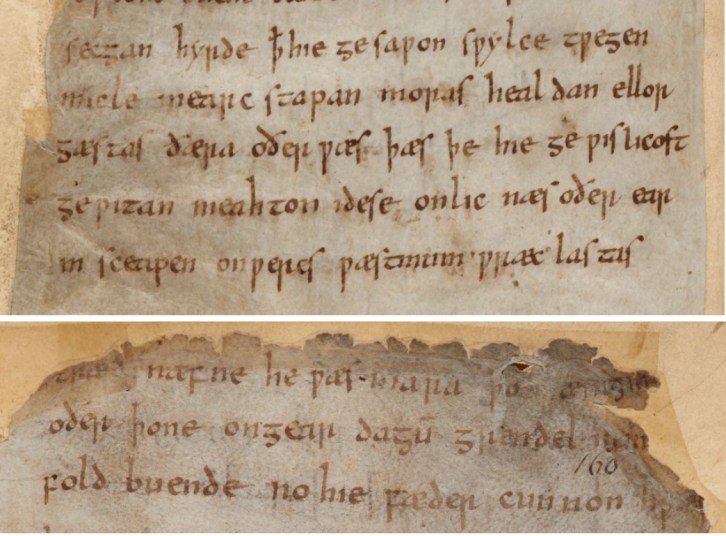 secgan hyrde ꝥ hie ge saƿon sƿylce tƿegen
micle mearc stapan moras heal dan ellor
gæstas ðæra oðer ƿæs þæs þe hie ge ƿislicost
ge ƿitan meahton idese onlic næs oðer ear
m sceapen on ƿeres ƿæstmum ƿræc lastas
træd næfne he ƿæs mara
oðer þone on gear dagū grendel
160
fold buende no hie fæder cunnon